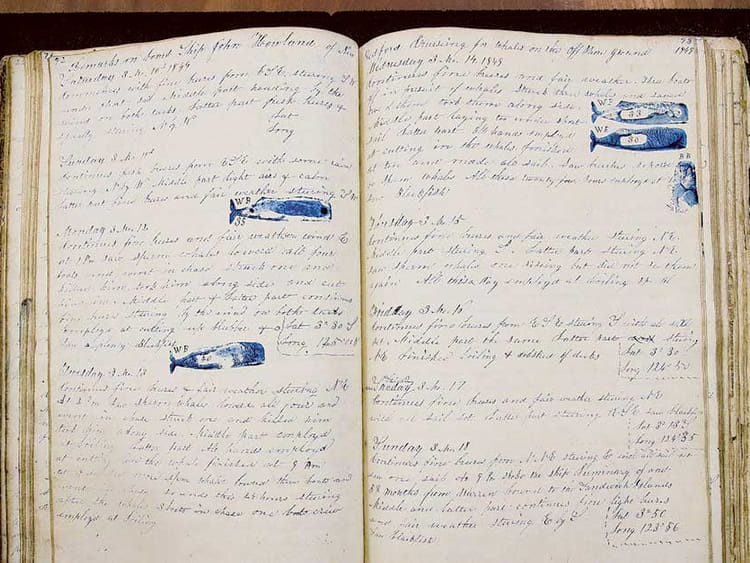 Remarks on board Ship John Howland of New
Saturday 3 Mo. 10th 1849
Commences with fine breezes from ESE steering
wind Middle part heading by the
wind on both tacks Latter part fresh breezes &
steering N by W Lat
Long
Sunday 3 Mo. 11th
Continues fresh breezes from ESE with some rain
steering N by W Middle part light airs & calm
Latter part fine breezes and fair weather steering
WB
35
Monday 3 Mo. 12
Continues fine breezes and fair weather wind E
at 1 PM saw sperm whales lowered all four
boats and went in chase struck one and
killed him took him along side and cut
him in. Middle part & Latter part continues
fine breezes steering by the wind on both tacks
employed at cutting up blubber & Lat 3° 30 S
saw a plenty Blackfish Long 125
WB
50
Tuesday 3 Mo. 13
Continues fine breezes & fair weather steering NE
At 2 PM saw sperm whales lowered all four and
went in chase struck one and killed him
took him along side. Middle part employed
at boiling Latter part All hands employed
at cutting in the whale finished at 9 AM
saw sperm whales lowered three boats and
went in chase so ends this 24 hours steering
after the whales 3 boats in chase one boats crew
employed at boiling
Bedford Cruising for whales on the Off Shore Ground
73
1849
Wednesday 3 Mo. 14. 1849
Continues fine breezes and fair weather three boats
off in pursuit of whales Struck two whales and saved
two of them took them along side.
Middle part laying too under short
sail Latter part All hands employed
at cutting in the whales finished
at ten and made all sail. Saw breaches
Sperm whales All these twenty four hours employed at
saw Blackfish
WB
33
WB
30
BB
Thursday 3 Mo. 15
Continues fine breezes and fair weather steering NE.
Middle part steering E. Latter part steering NE
saw sperm whales one rising but did not see them
again All these day employed at boiling up oil
Friday 3 Mo. 16
Continues fine breezes from ESE steering with all sails
set. Middle part the same Latter part steering
NE Finished boiling & washed off decks Lat 3° 30
Long 124° 50
Saturday 3 Mo. 17
Continues fine breezes and fair weather steering NE
with all sail set. Latter part steering saw blackfish
Lat 3° 13
Long 124° 35
Sunday 3 Mo. 18
Continues fine breezes from NNE steering E with all sail set
saw one sail at spoke the ship Summary of and
months from Warren bound to the Sandwich Islands
Middle and Latter part continues fine light breezes
and fair weather steering E by S Lat 3° 50
Saw blackfish Long 123° 56